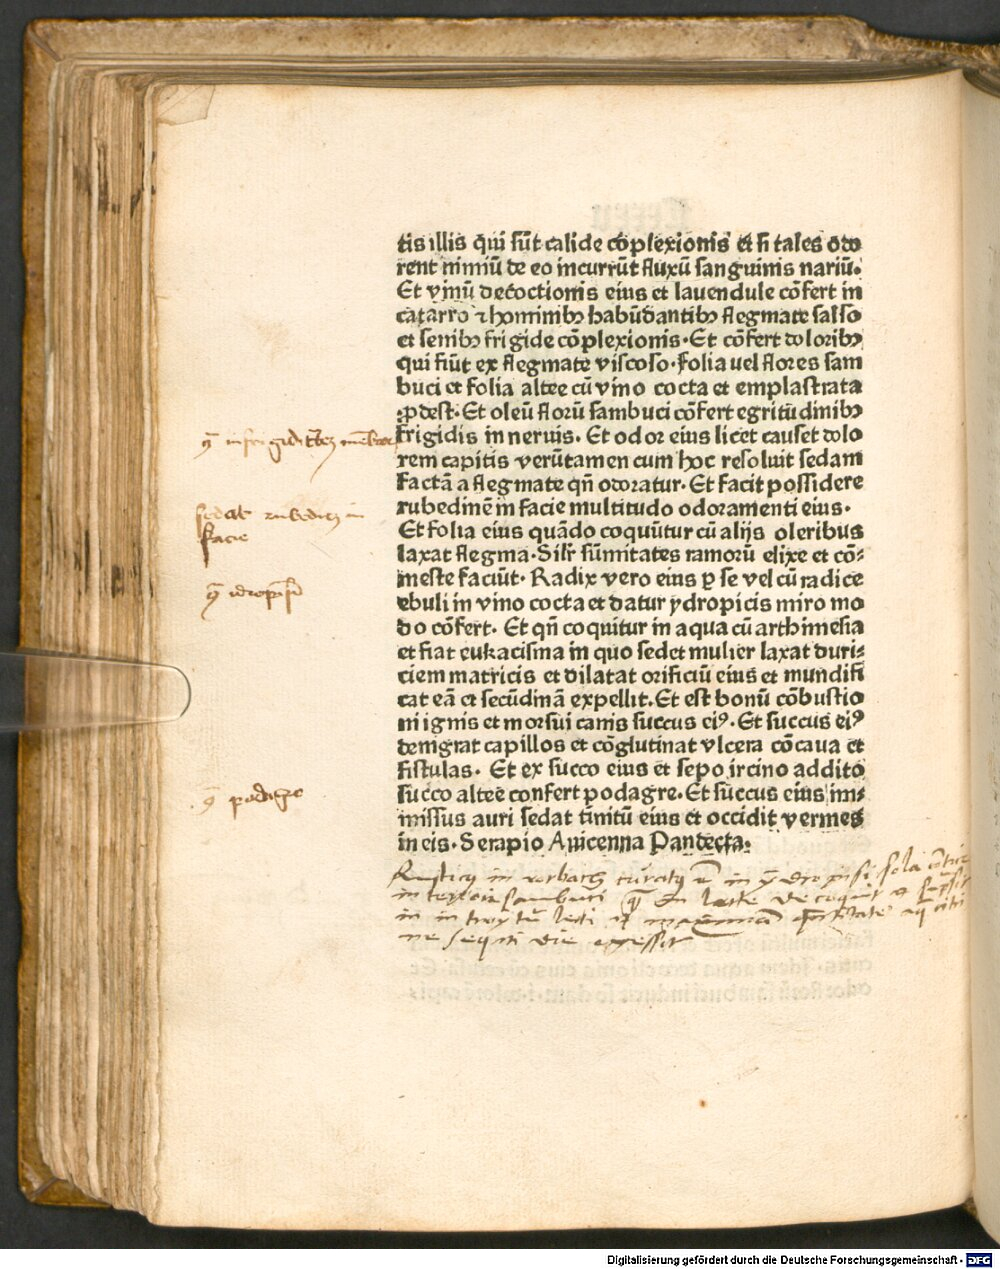 tis illis qui sūt calide cōplexionis et si tales odo
rent nimiū de eo incurrūt fluxū sanguinis nariū.
Et vinū decoctionis eius et lauendule cōfert in
catarro ⁊ hominibꝰ habūdantibꝰ flegmate salso
et senibꝰ frigide cōplexionis. Et cōfert doloribꝰ
qui fiūt ex flegmate viscoso. Folia uel flores sam
buci et folia altee cū vino cocta et emplastrata
ꝓdest. Et oleū florū sambuci cōfert egritudinibꝰ
frigidis in neruis. Et odor eius licet causet dolo
rem capitis verūtamen cum hoc resoluit sedam
factā a flegmate qn̄ odoratur. Et facit possidere
rubedinē in facie multitudo odoramenti eius.
Et folia eius quādo coquūtur cū alijs oleribus
laxat flegma. Silr̄ sūmitates ramorū elixe et cō⸗
meste faciūt. Radix vero eius ꝑ se vel cū radice
ebuli in vino cocta et datur ydropicis miro mo
do cōfert. Et qn̄ coquitur in aqua cū arthimesia
et fiat eukacisma in quo sedet mulier laxat duri⸗
ciem matricis et dilatat orificiū eius et mundifi
cat eā et secūdinā expellit. Et est bonū cōbustio
ni ignis et morsui canis succus eiꝰ. Et succus eiꝰ
denigrat capillos et cōglutinat vlcera cōcaua et
fistulas. Et ex succo eius et sepo ircino addito
succo altee confert podagre. Et succus eius im⸗
missus auri sedat tinitū eius et occidit vermes
in eis. Serapio Auicenna Pandecta.
sedat
facie
podagre
Rusticꝰ in curatꝰ in sola
in sambuci lacte
in
ne sequenti die
Digitalisierung gefördert durch die Deutsche Forschungsgemeinschaft - DFG